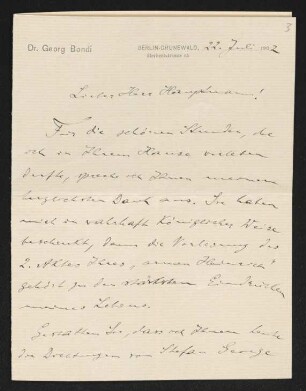 3
Dr. Georg Bondi
BERLIN-GRUNEWALD, 22. Juli 1902
Herbertstrasse 15
Lieber Herr Hauptmann!
Für die schönen Stunden, die
ich in Ihrem Hause verleben
durfte, spreche ich Ihnen meinen
herzlichsten Dank aus. Sie haben
mich in wahrhaft königlicher Weise
beschenkt, denn die Vorlesung des
2. Aktes Ihres „armen Heinrich“
gehört zu den stärksten Eindrücken
meines Lebens.
Gestatten Sie, dass ich Ihnen heute
die Dichtungen von Stefan George